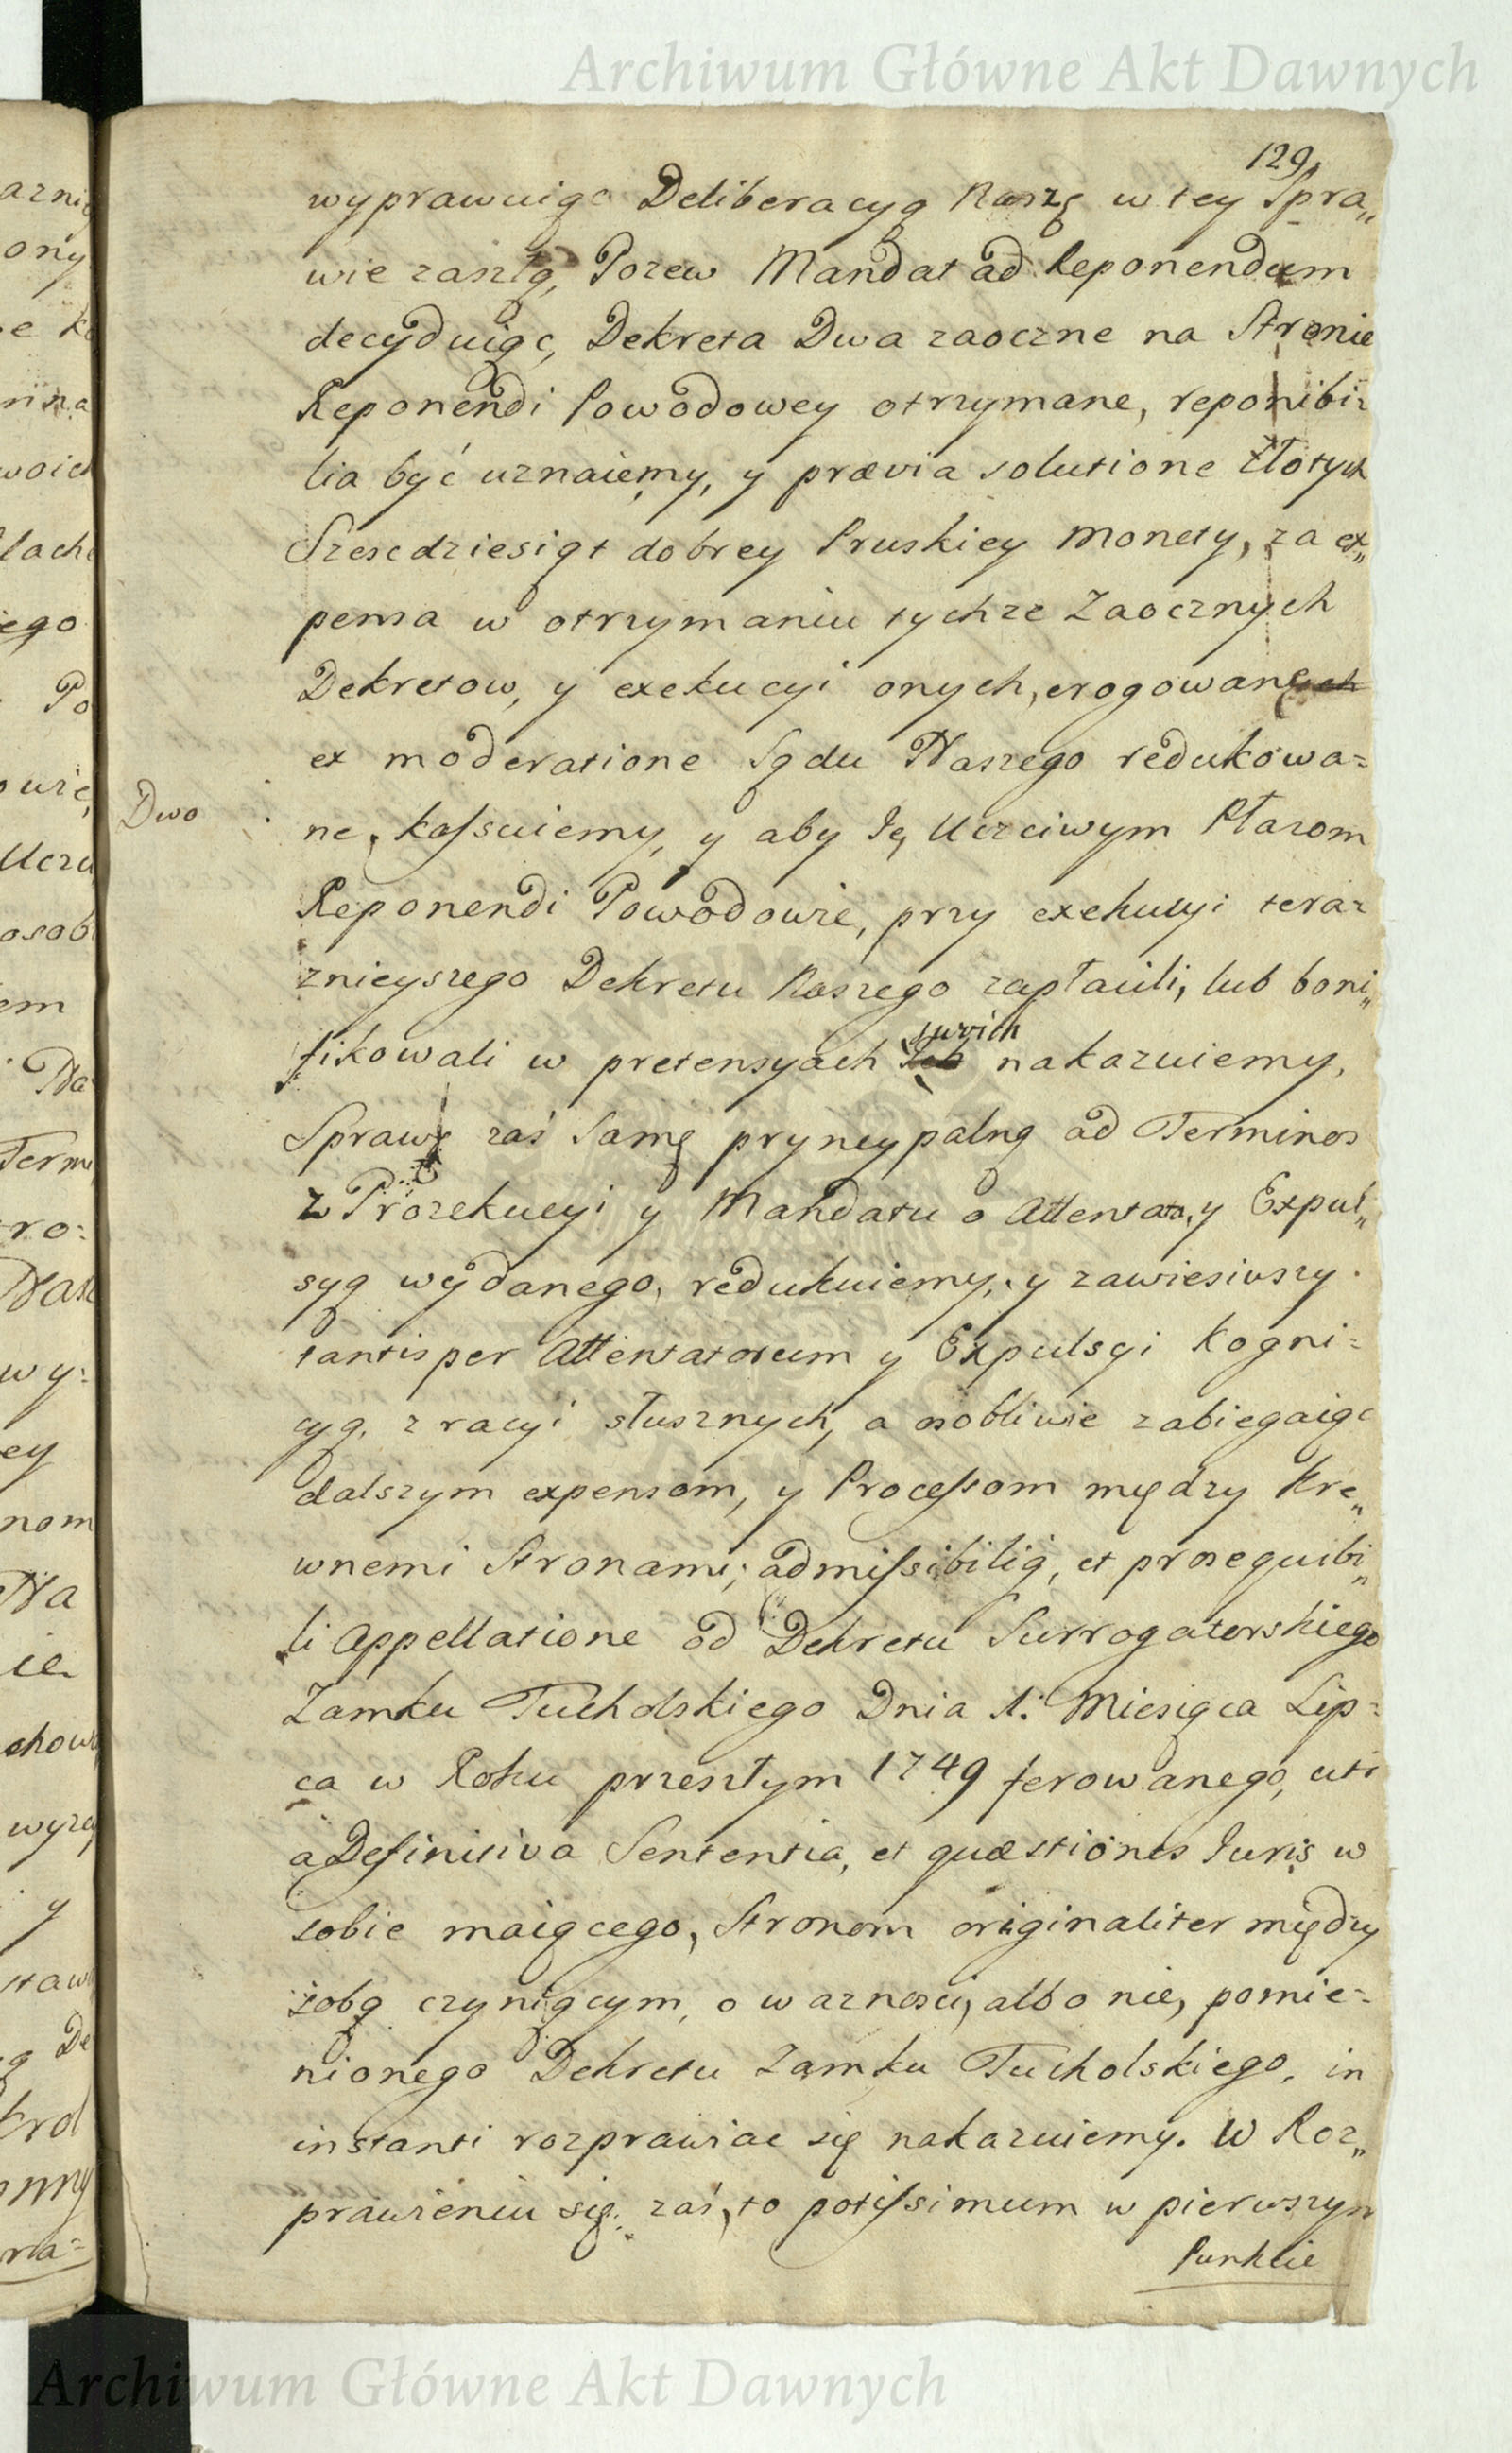 Archiwum Główne Akt Dawnych
129
wyprawuiąc Deliberacyą Naszę w tey Spra„
wie zaszłą, Pozew Mandat ad Reponendum
decyduiąc, Dekreta Dwa zaoczne na Stronie
Reponendi Powodowey otrzymane, reponibi=
lia być uznaiemy, y prævia solutione Złotych
Szescdziesiąt dobrey Pruskiey Monety, za ex„
pensa w otrzymaniu tychze Zaocznych
Dekretow, y exekucyi onych, erogowane
ex moderatione Sądu Naszego redukowa=
ne, kassuiemy, y aby Ię Uczciwym Ptazom
Dwo
Reponendi Powodowie, przy exekucyi teraz
znieyszego Dekretu Naszego zapłacili, lub boni„
fikowali w pretensyach swoich nakazuiemy,
Sprawę zaś Samę pryncypalną ad Terminos
z Prozekucyi y Mandatu o Attentata, y Expul„
syą wydanego, redukuiemy, y zawiesiwszy
tantisper Attentatorum y Expulsyi kogni=
cyą, z racyi słusznych, a osobliwie zabiegaiąc
dalszym expensom, y Processom między kre„
wnemi Stronami, admissibilią, et prosequibi„
li Appellatione od Dekretu Surrogatorskiego
Zamku Tucholskiego Dnia 1. Miesiąca Lip=
ca w Roku przeszłym 1749 ferowanego, uti
a Definitiva Sententia, et quæstiones Iuris w
sobie maiącego, Stronom originaliter między
sobą czyniącym, o waznosci, albo nie, pomie=
nionego Dekretu Zamku Tucholskiego, in
instanti rozprawiac się nakazuiemy. W Roz„
prawieniu się zaś, to potissimum w pierwszym
Punkcie
Archiwum Główne Akt Dawnych